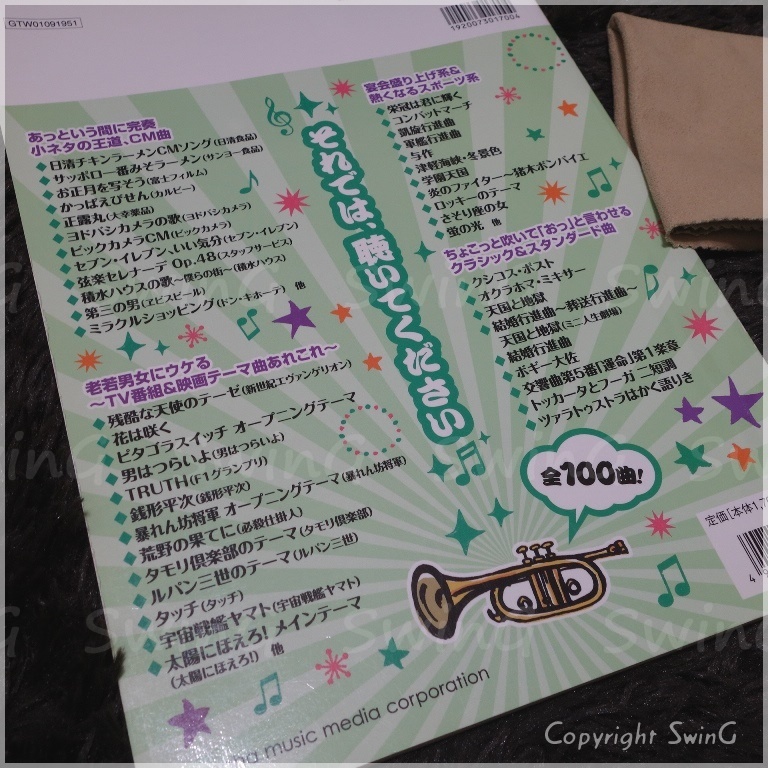 GTW01091951
1920073017004
あっという間に完奏
小ネタの王道、CM曲
日清チキンラーメンCMソング(日清食品)
サッポロ一番みそラーメン(サンヨー食品)
お正月を写そう(富士フィルム)
かっぱえびせん(カルビー)
正露丸(大幸薬品)
ヨドバシカメラの歌(ヨドバシカメラ)
ビックカメラCM(ビックカメラ)
セブン・イレブン、いい気分(セブン・イレブン)
弦楽セレナーデ Op.48(スタッフサービス)
積水ハウスの歌〜僕らの街〜(積水ハウス)
第三の男(ヱビスビール)
ミラクルショッピング(ドン・キホーテ) 他
老若男女にウケる
〜TV番組&映画テーマ曲あれこれ〜
残酷な天使のテーゼ(新世紀エヴァンゲリオン)
花は咲く
ピタゴラスイッチ オープニングテーマ
男はつらいよ(男はつらいよ)
TRUTH(F1グランプリ)
銭形平次(銭形平次)
暴れん坊将軍 オープニングテーマ(暴れん坊将軍)
荒野の果てに(必殺仕掛人)
タモリ倶楽部のテーマ(タモリ倶楽部)
ルパン三世のテーマ(ルパン三世)
タッチ(タッチ)
宇宙戦艦ヤマト(宇宙戦艦ヤマト)
太陽にほえろ! メインテーマ
(太陽にほえろ!) 他
それでは、聴いてください
宴会盛り上げ系&
熱くなるスポーツ系
栄冠は君に輝く
コンバットマーチ
凱旋行進曲
軍艦行進曲
与作
津軽海峡・冬景色
学園天国
炎のファイター〜猪木ボンバイエ
ロッキーのテーマ
さそり座の女
蛍の光 他
ちょこっと吹いて「おっ」と言わせる
クラシック&スタンダード曲
クシコス・ポスト
オクラホマ・ミキサー
天国と地獄
結婚行進曲〜葬送行進曲〜
天国と地獄(ミニ人生劇場)
結婚行進曲
ボギー大佐
交響曲第5番「運命」第1楽章
トッカータとフーガ ニ短調
ツァラトゥストラはかく語りき
全100曲!
定価[本体1,7
music media corporation
Copyright SwinG